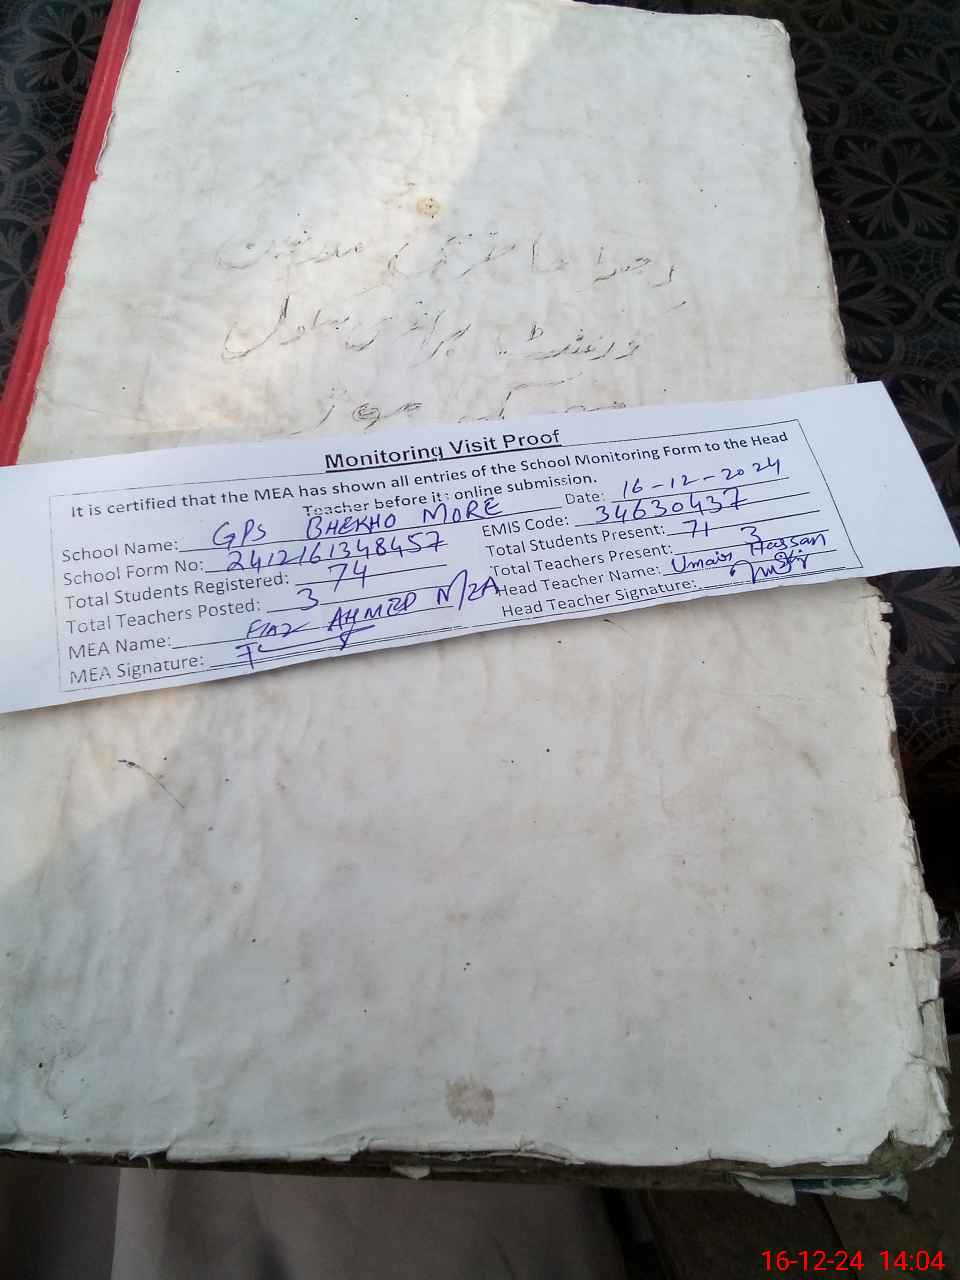 رجسٹر حاضری مدرسین
گورنمنٹ پرائمری سکول
موڑ
Monitoring Visit Proof
It is certified that the MEA has shown all entries of the School Monitoring Form to the Head
Teacher before it's online submission.
School Name: GPS BHEKHO MORE Date: 16-12-2024
School Form No: 2412161348457 EMIS Code: 34630437
Total Students Registered: 74 Total Students Present: 71
Total Teachers Posted: 3 Total Teachers Present: 3
MEA Name: FIAZ AHMED Head Teacher Name: Umair Hassan
MEA Signature: Head Teacher Signature:
16-12-24 14:04